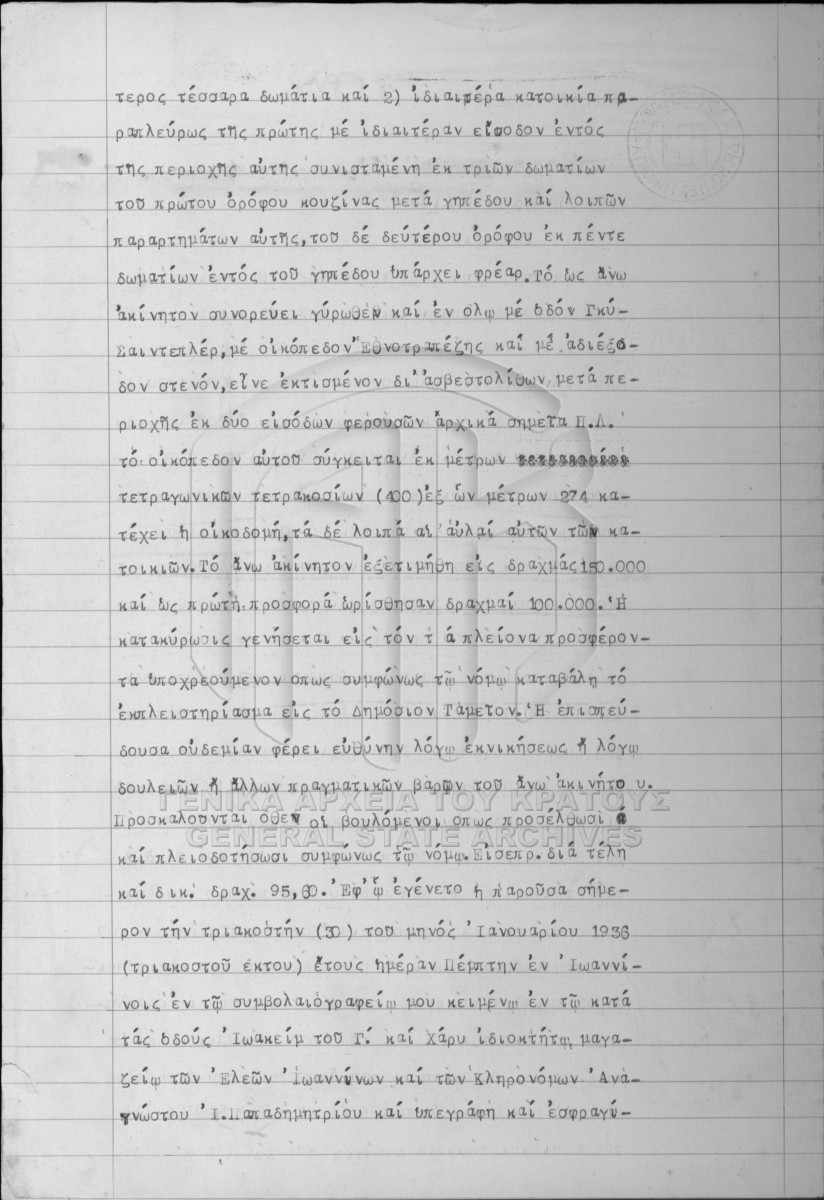 τερος τέσσαρα δωμάτια καί 2) ἰδιαιτέρα κατοικία πα-
ραπλεύρως τῆς πρώτης μέ ἰδιαιτέραν εἴσοδον ἐντός
τῆς περιοχῆς αὐτῆς συνισταμένη ἐκ τριῶν δωματίων
τοῦ πρώτου ὀρόφου κουζίνας μετά γηπέδου καί λοιπῶν
παραρτημάτων αὐτῆς,τοῦ δέ δευτέρου ὀρόφου ἐκ πέντε
δωματίων ἐντός τοῦ γηπέδου ὑπάρχει φρέαρ.Τό ὡς ἄνω
ἀκίνητον συνορεύει γύρωθεν καί ἐν ὅλῳ μέ ὁδόν Γκύ-
Σαιντεπλέρ,μέ οἰκόπεδον Ἐθνοτραπέζης καί μέ ἀδιέξο-
δον στενόν,εἶνε ἐκτισμένον δι' ἀσβεστολίθων μετά πε-
ριοχῆς ἐκ δύο εἰσόδων φερουσῶν ἀρχικά σημεῖα Π.Λ.'
τό οἰκόπεδον αὐτοῦ σύγκειται ἐκ μέτρων
τετραγωνικῶν τετρακοσίων (400)ἐξ ὧν μέτρων 274 κα-
τέχει ἡ οἰκοδομή,τά δέ λοιπά αἱ αὐλαί αὐτῶν τῶν κα-
τοικιῶν.Τό ἄνω ἀκίνητον ἐξετιμήθη εἰς δραχμάς 150.000
καί ὡς πρώτη προσφορά ὡρίσθησαν δραχμαί 100.000.Ἡ
κατακύρωσις γενήσεται εἰς τόν τ ά πλείονα προσφέρον-
τα ὑποχρεούμενον ὅπως συμφώνως τῷ νόμῳ καταβάλῃ τό
ἐκπλειστηρίασμα εἰς τό Δημόσιον Ταμεῖον.Ἡ ἐπισπεύ-
δουσα οὐδεμίαν φέρει εὐθύνην λόγῳ ἐκνικήσεως ἤ λόγῳ
δουλειῶν ἤ ἄλλων πραγματικῶν βαρῶν τοῦ ἄνω ἀκινήτο υ.
Προσκαλοῦνται ὅθεν οἱ βουλόμενοι ὅπως προσέλθωσι
καί πλειοδοτήσωσι συμφώνως τῷ νόμῳ.Εἰσεπρ.διά τέλη
καί δικ. δραχ. 95,60.Ἐφ' ᾧ ἐγένετο ἡ παροῦσα σήμε-
ρον τήν τριακοστήν (30) τοῦ μηνός Ἰανουαρίου 1936
(τριακοστοῦ ἕκτου) ἔτους ἡμέραν Πέμπτην ἐν Ἰωαννί-
νοις ἐν τῷ συμβολαιογραφείῳ μου κειμένῳ ἐν τῷ κατά
τάς ὁδούς Ἰωακείμ τοῦ Γ. καί Χάρυ ἰδιοκτήτῳ μαγα-
ζείῳ τῶν Ἐλεῶν Ἰωαννίνων καί τῶν Κληρονόμων Ἀνα-
γνώστου Ἰ.Παπαδημητρίου καί ὑπεγράφη καί ἐσφραγί-
ΓΕΝΙΚΑ ΑΡΧΕΙΑ ΤΟΥ ΚΡΑΤΟΥΣ
GENERAL STATE ARCHIVES